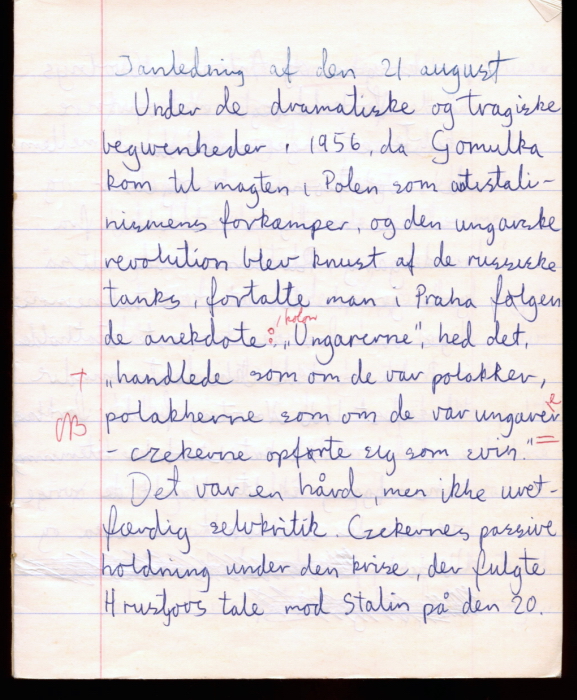 I anledning af den 21. august
Under de dramatiske og tragiske
begivenheder i 1956, da Gomulka
kom til magten i Polen som atistali-
nismens forkæmper, og den ungarske
revolution blev knust af de russiske
tanks, fortalte man i Praha følgen
de anekdote: kolon „Ungarerne", hed det,
+ „handlede som om de var polakker,
polakkerne som om de var ungarer e
- czekerne opførte sig som svin."
Det var en hård, men ikke uret-
færdig selvkritik. Czekernes passive
holdning under den krise, der fulgte
Hrustjovs tale mod Stalin på den 20.